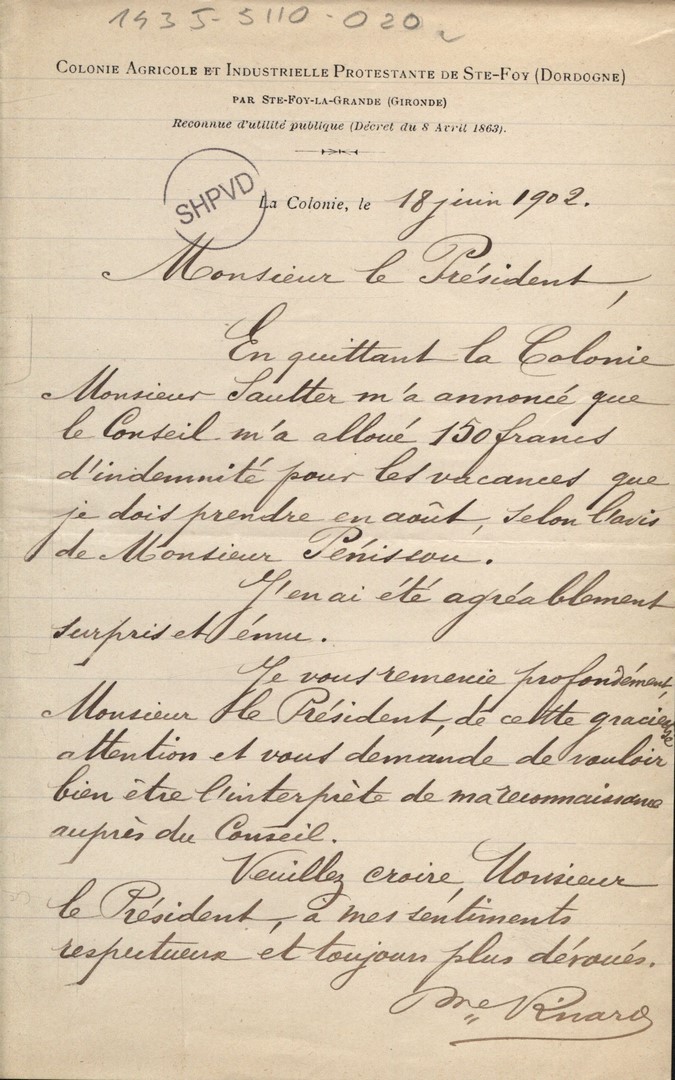 1935-5110-020
COLONIE AGRICOLE ET INDUSTRIELLE PROTESTANTE DE STE-FOY (DORDOGNE)
PAR STE-FOY-LA-GRANDE (GIRONDE)
Reconnue d'utilité publique (Décret du 8 Avril 1863).
SHPVD
La Colonie, le 18 juin 1902.
Monsieur le Président,
En quittant la Colonie
Monsieur Sautter m'a annoncé que
le Conseil m'a alloué 150 francs
d'indemnité pour les vacances que
je dois prendre en août, selon l'avis
de Monsieur Pénissou.
J'en ai été agréablement
surpris et ému.
Je vous remercie profondément,
Monsieur le Président, de cette gracieuse
attention et vous demande de vouloir
bien être l'interprète de ma reconnaissance
auprès du Conseil.
Veuillez croire, Monsieur
le Président, à mes sentiments
respectueux et toujours plus dévoués.